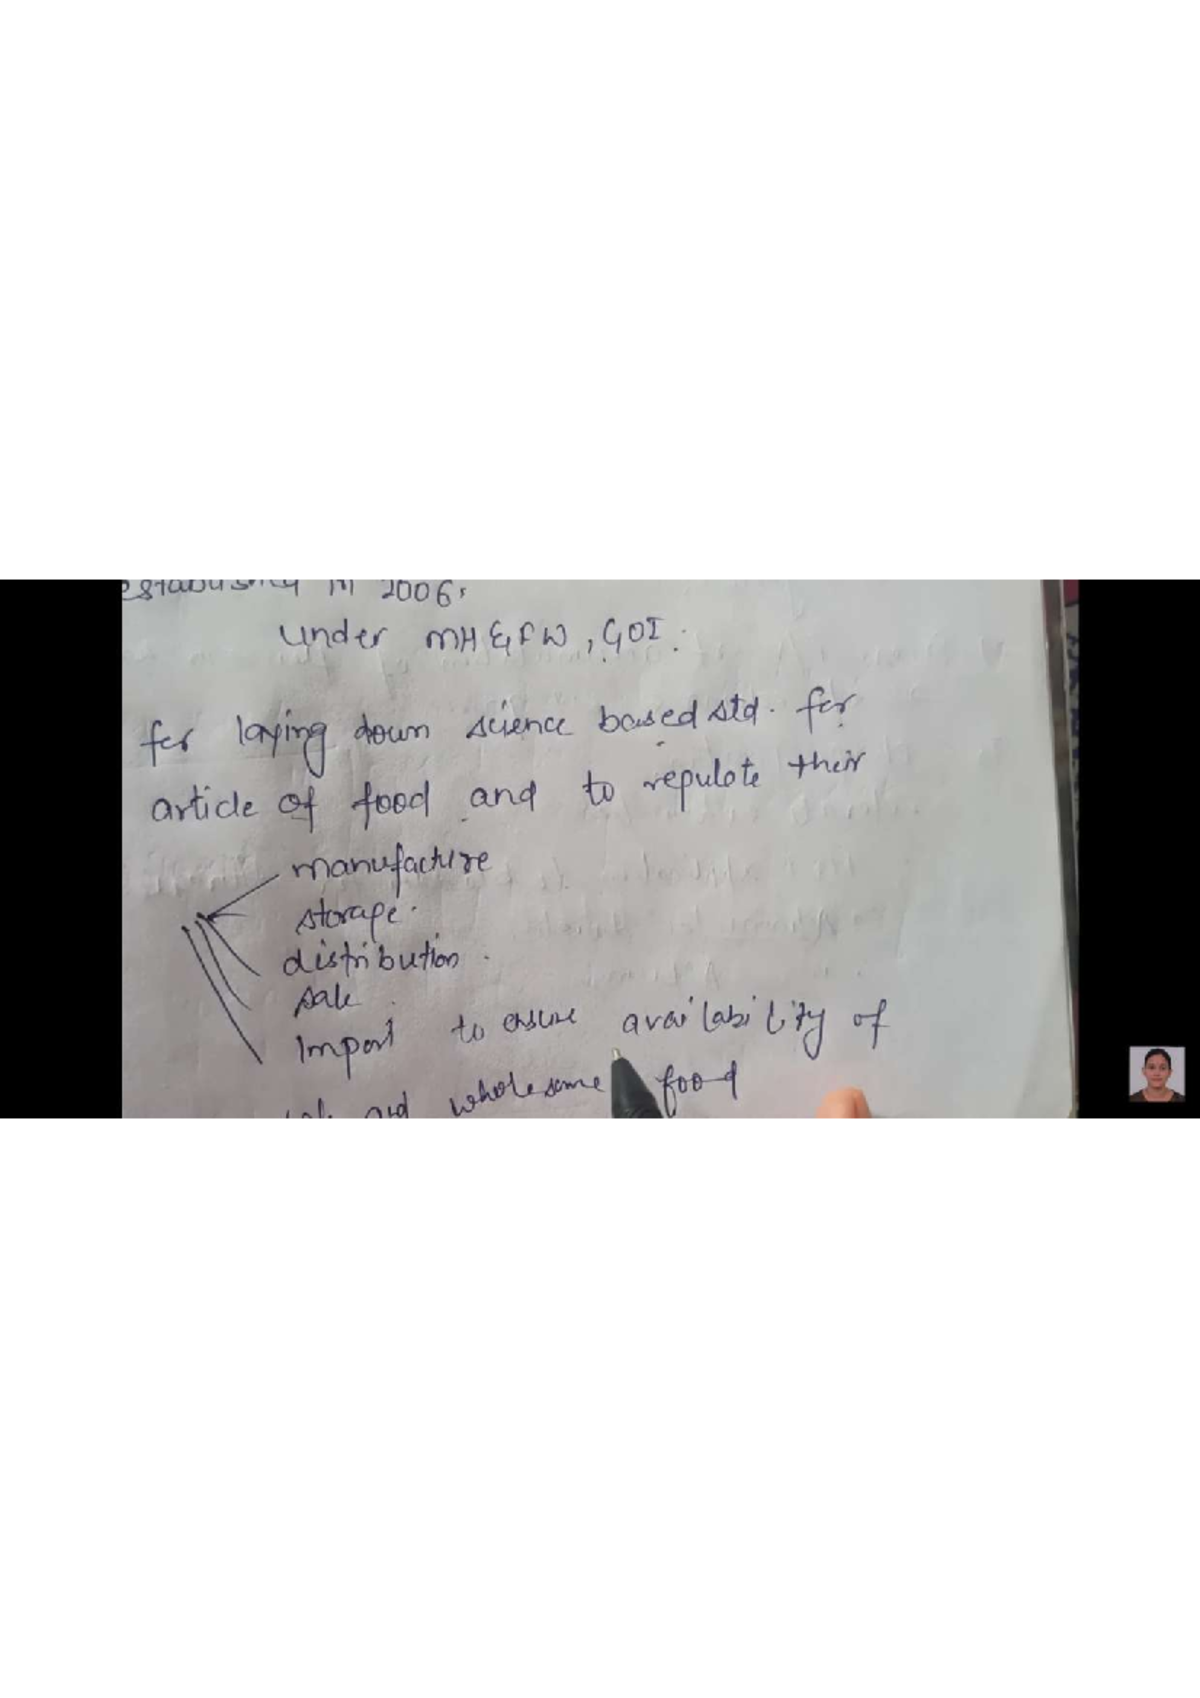 in 2006.
under MH&FW, GOI.
for laying down science based std. for
article of food and to regulate their
manufacture
storage.
distribution.
sale.
Import to ensure availability of
and wholesome food